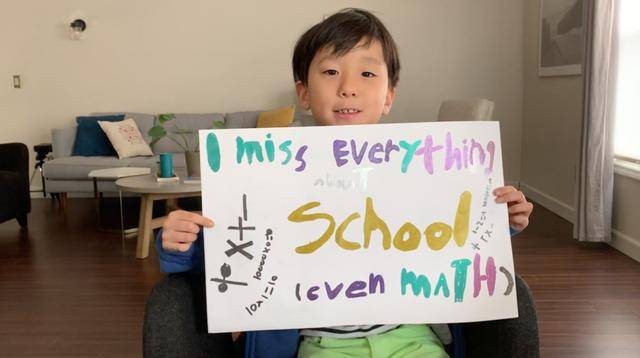 I miss EvErything
about
School
(even mATH)
10000x0=0
10x1=10